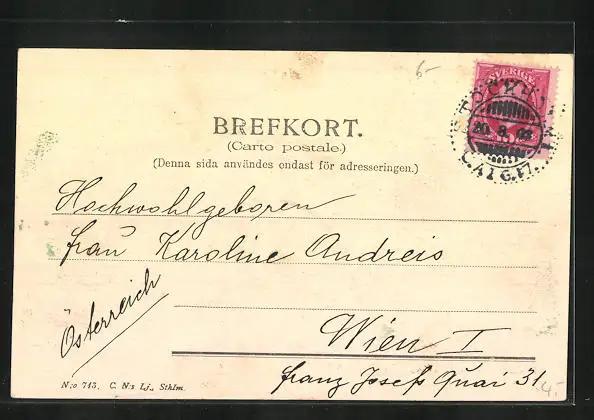 6-
SVERIGE
STOCKHOLM 1
20.8.03
BREFKORT.
(Carte postale.)
(Denna sida användes endast för adresseringen.)
Hochwohlgeboren
frau Karoline Andreis
Österreich
Wien I
franz Josefs Quai 31
N:o 743. C. N:s Lj., Sthlm.